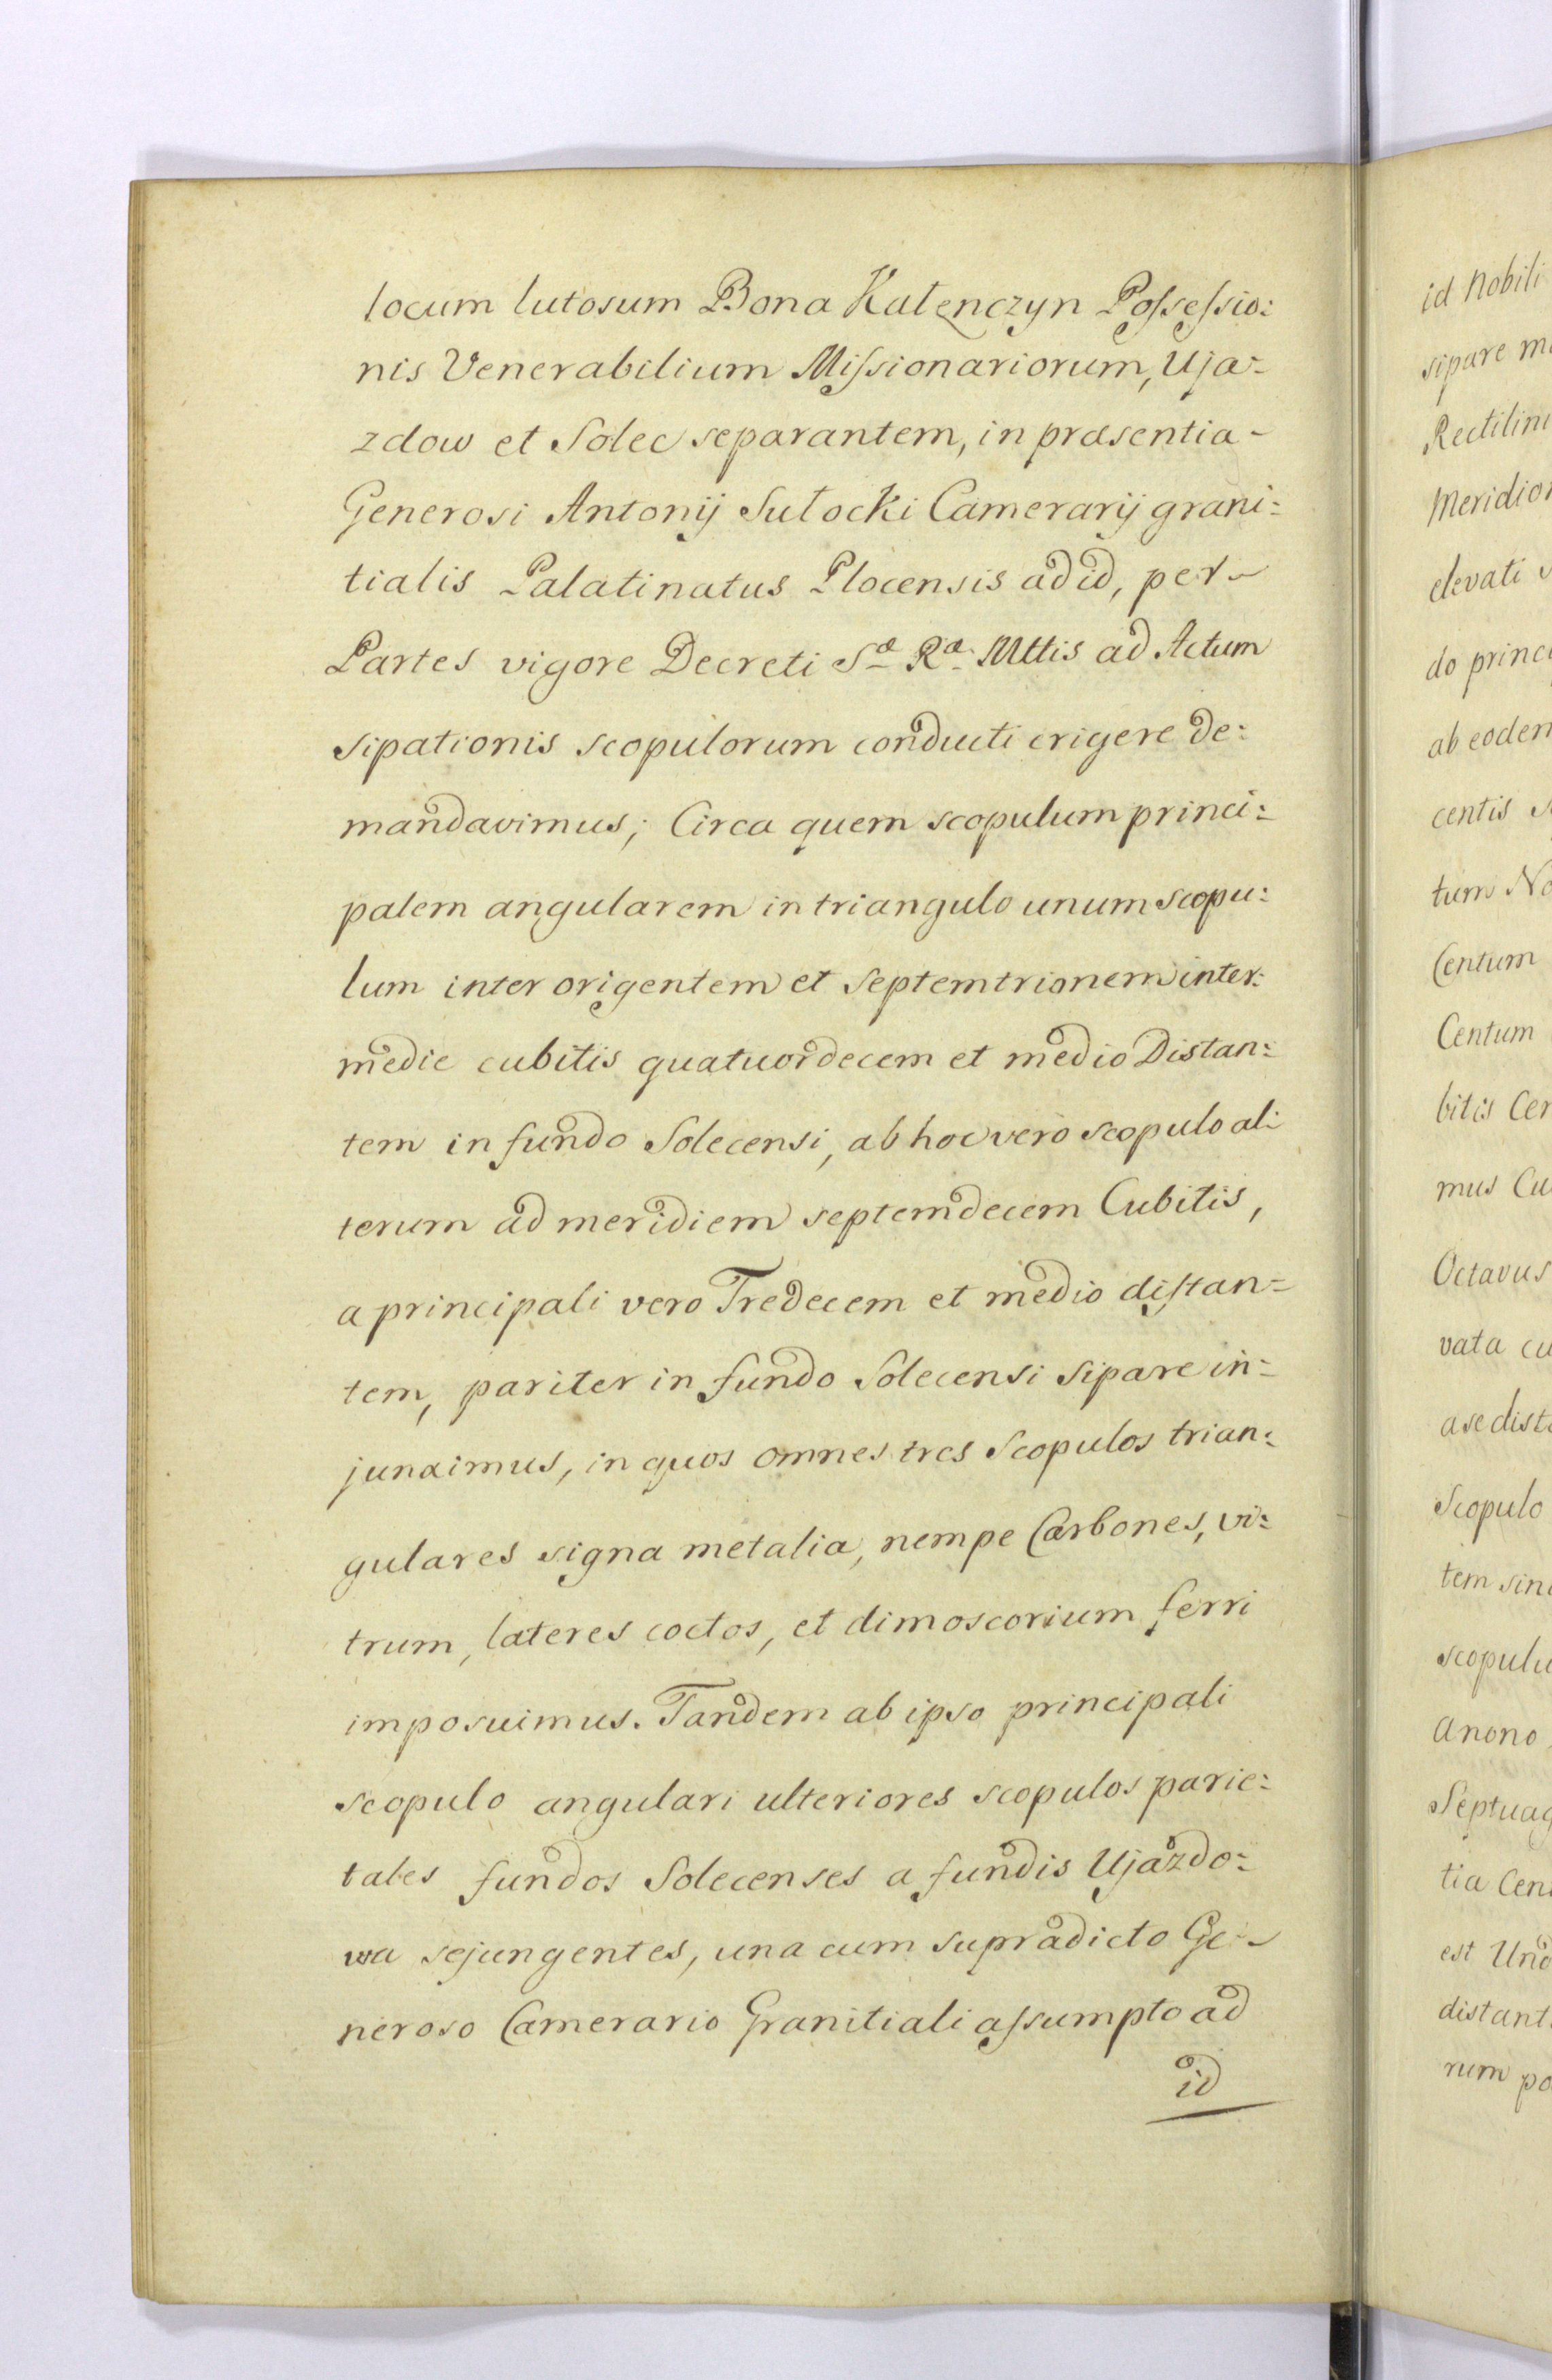 locum lutosum Bona Kałęnczyn Possessio:
nis Venerabilium Missionariorum, Uja-
zdow et Solec separantem, in præsentia-
Generosi Antonij Sułocki Camerarij grani:
tialis Palatinatus Plocensis ad id, per
Partes vigore Decreti Sæ Ræ Mttis ad Actum
sipationis scopulorum conducti erigere de:
mandavimus; Circa quem scopulum princi:
palem angularem in triangulo unum scopu:
lum inter origentem et Septemtrionem inter:
medie cubitis quatuordecem et medio Distan:
tem in fundo Solecensi, ab hoc vero scopulo al:
terum ad meridiem septemdecem Cubitis,
a principali vero Tredecem et medio distan=
tem, pariter in fundo Solecensi sipare in=
junximus, in quos omnes tres Scopulos trian:
gulares signa metalia, nempe Carbones, vi:
trum, lateres coctos, et dimoscorium ferri
imposuimus. Tandem ab ipso principali
scopulo angulari ulteriores scopulos parie:
tales fundos Solecenses a fundis Ujazdo:
wa sejungentes, una cum supradicto Ge-
neroso Camerario Granitiali assumpto ad
id
id Nobili
sipare
Rectilin
Meridio
elevati
do princ
ab eodem
centis
tum
Centum
Centum
bitis Cen
mus Cu
Octavus
vata cu
a se dist
Scopulo
tem sin
scopulu
a nono
Septuag
tia Cen
est Und
distant
rum po